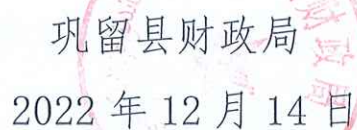 巩留县财政局
2022年12月14日